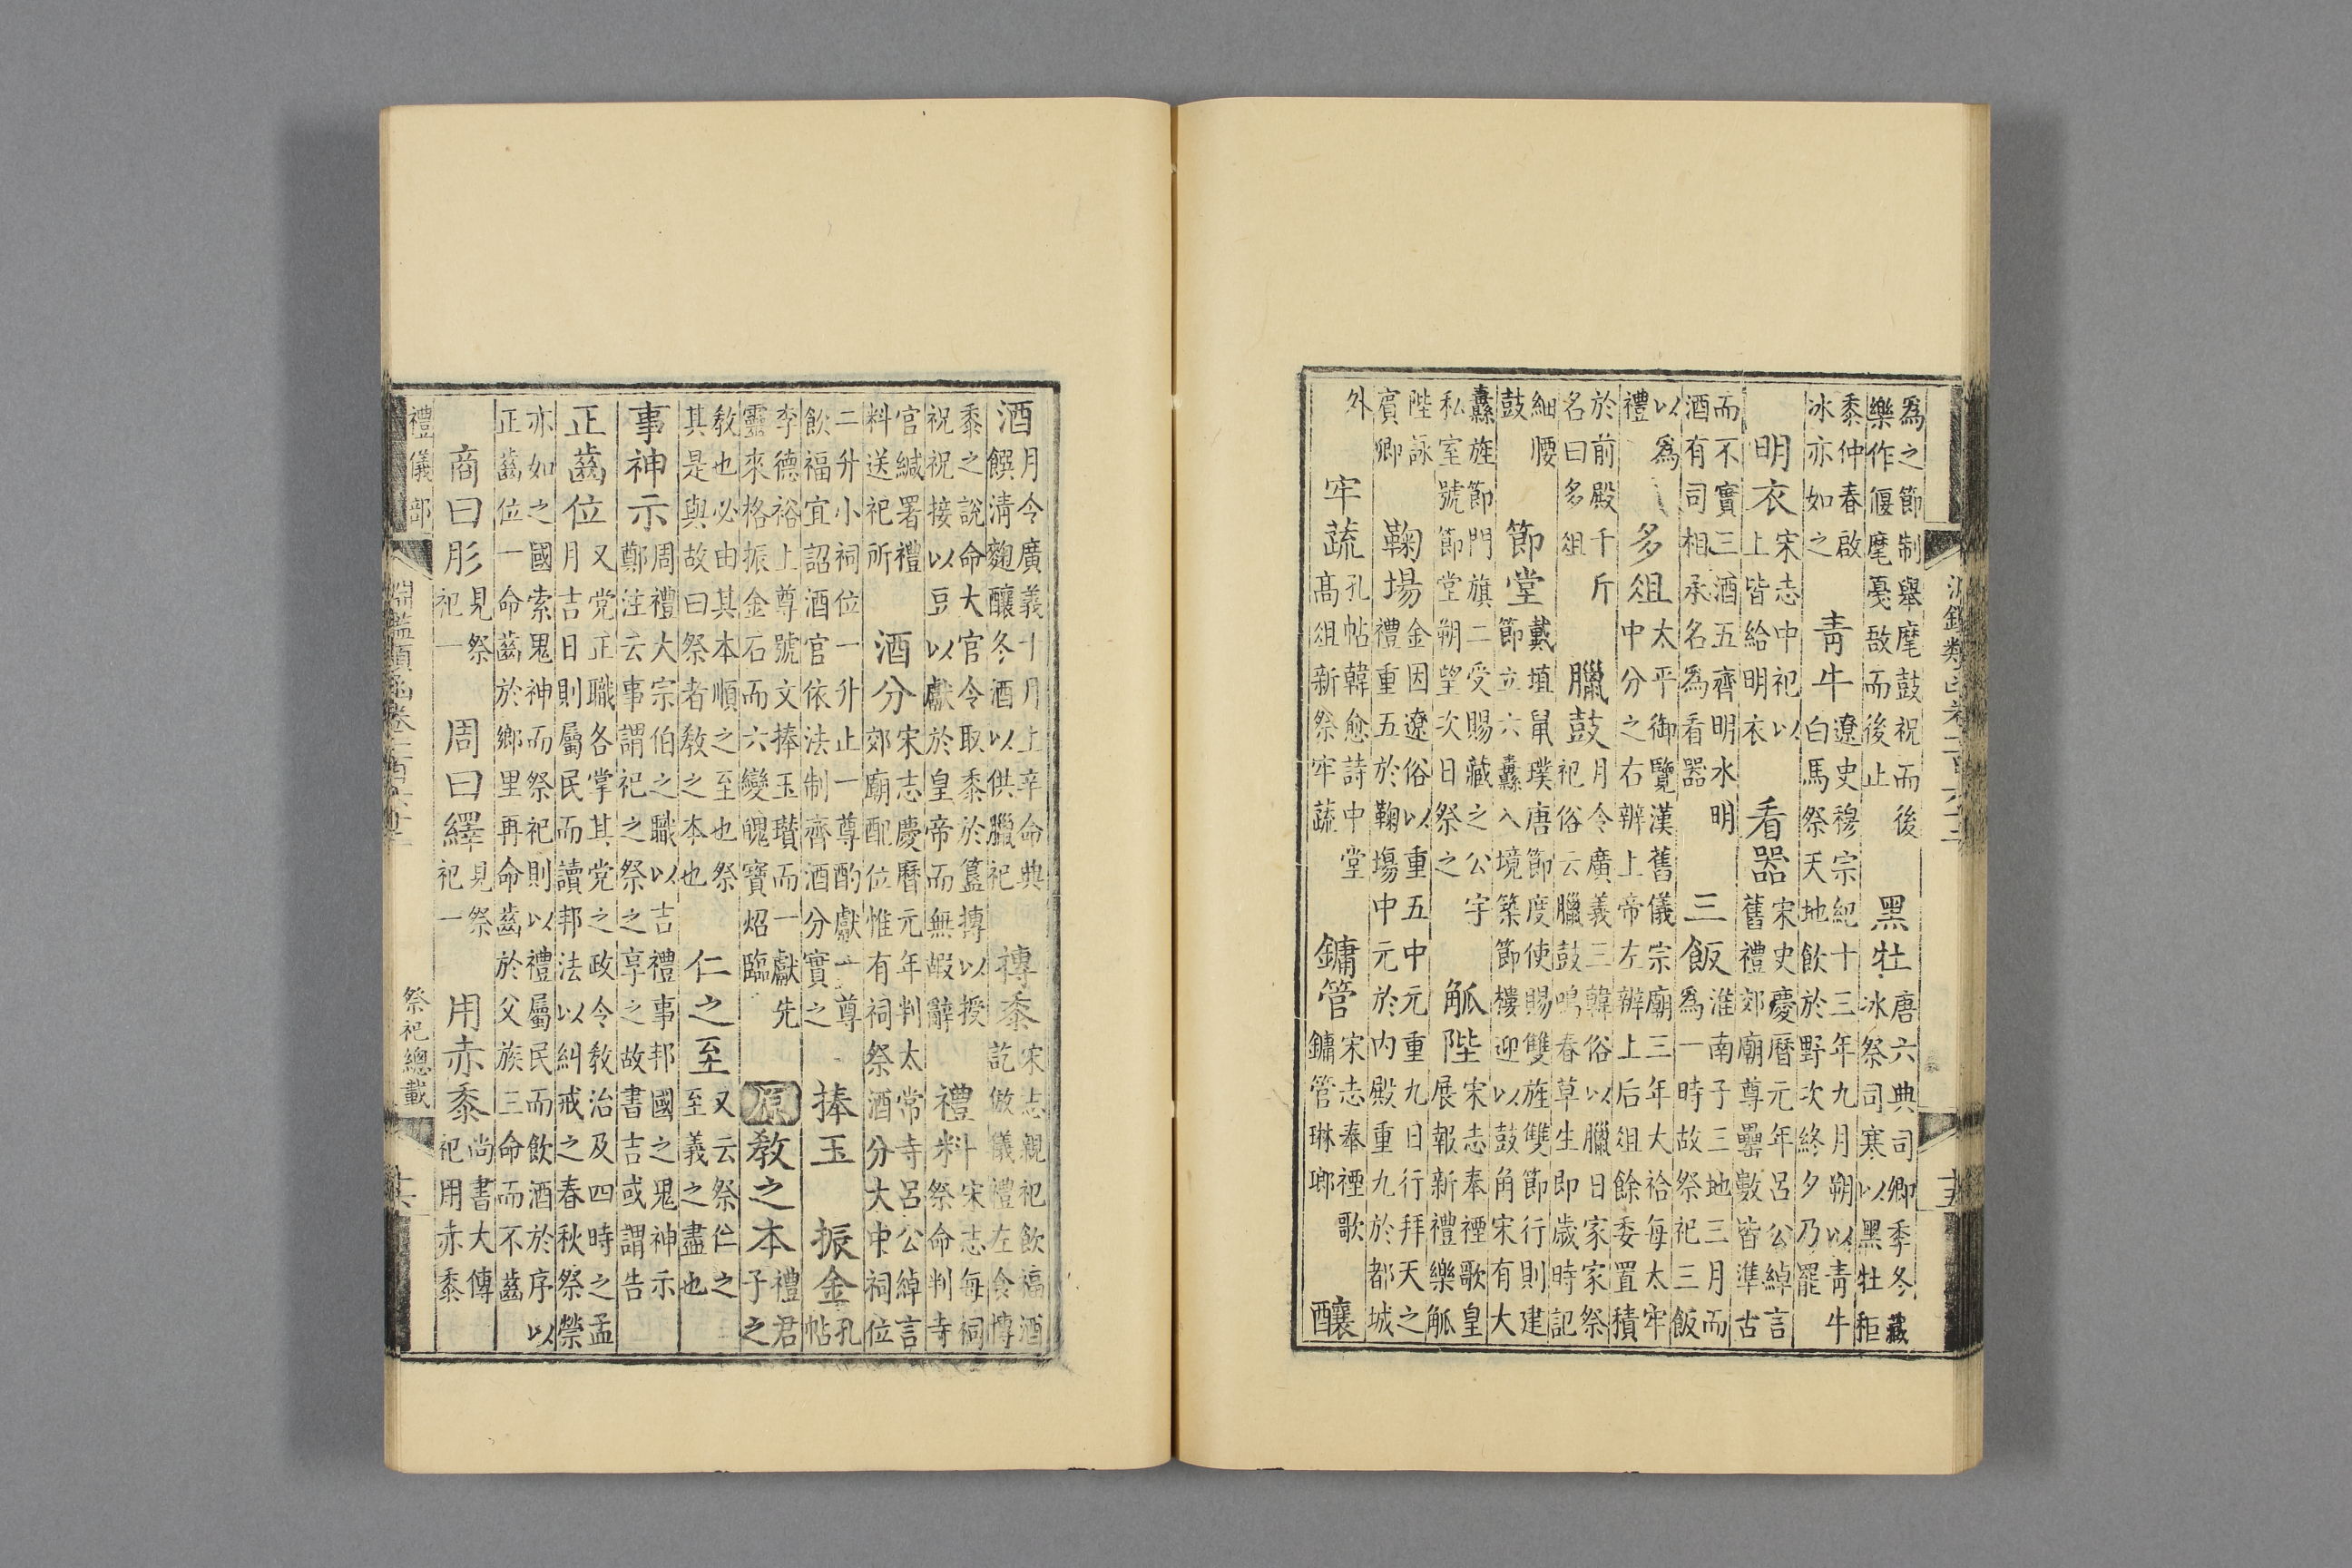 淵鑑類函卷一百六十 十五
為之節制舉麾鼓柷而後樂作偃麾戞敔而後止 黑牡 唐六典司卿季冬藏冰祭司寒以黑牡秬
黍仲春啟冰亦如之 青牛 遼史穆宗紀十三年九月朔以青牛白馬祭天地飲於野次終夕乃罷
明衣 宋志中祀以上皆給明衣 看器 宋史慶曆元年呂公綽言舊禮郊廟尊罍數皆準古
而不實三酒五齊明水明酒有司相承名為看器 三飯 淮南子三地三月而為一時故祭祀三飯
以為禮 多俎 太平御覽漢舊儀宗廟三年大祫每太牢中分之右辨上帝左辨上后俎餘委置積
於前殿千斤名曰多俎 臘鼓 月令廣義三韓俗以臘日家家祭祀俗云臘鼓鳴春草生即歲時記
細腰鼓 節堂 戴埴鼠璞唐節度使賜雙旌雙節行則建節立六纛入境築節樓迎以鼓角宋有大
纛旌節門旗二受賜藏之公宇私室號節堂朔望次日祭之 觚陛 宋志奉禋歌皇展報新禮樂觚
陛詠賔卿 鞠場 金因遼俗以重五中元重九日行拜天之禮重五於鞠塲中元於內殿重九於都城
外 牢蔬 孔帖韓愈詩中堂高俎新祭牢蔬 鏞管 宋志奉禋歌鏞管琳瑯 釀
酒 月令廣義十月上辛命典饌清麴釀冬酒以供臘祀 摶黍 宋志親祀飲福酒訖倣儀禮左食摶
黍之說命大官令取黍於簋摶以授祝祝接以豆以獻於皇帝而無嘏辭 禮料 宋志每祠祭命判寺
官緘署禮料送祀所 酒分 宋志慶曆元年判太常寺呂公綽言郊廟配位惟有祠祭酒分大中祠位
二升小祠位一升止一尊酌獻一尊飲福宜詔酒官依法制齊酒分實之 捧玉 振金 孔帖
李德裕上尊號文捧玉瓚而一獻先靈來格振金石而六變魄寶炤臨 原 教之本 禮君子之
教也必由其本順之至也祭其是與故曰祭者教之本也 仁之至 又云祭仁之至義之盡也
事神示 周禮大宗伯之職以吉禮事邦國之鬼神示鄭注云事謂祀之祭之享之故書吉或謂告
正齒位 又党正職各掌其党之政令教治及四時之孟月吉日則屬民而讀邦法以糾戒之春秋祭禜
亦如之國索鬼神而祭祀則以禮屬民而飲酒於序以正齒位一命齒於鄉里再命齒於父族三命而不齒
商曰肜 見祭祀一 周曰繹 見祭祀一 用赤黍 尚書大傳祀用赤黍
禮儀部 淵鑑類函卷一百六十 祭祀總載 十六